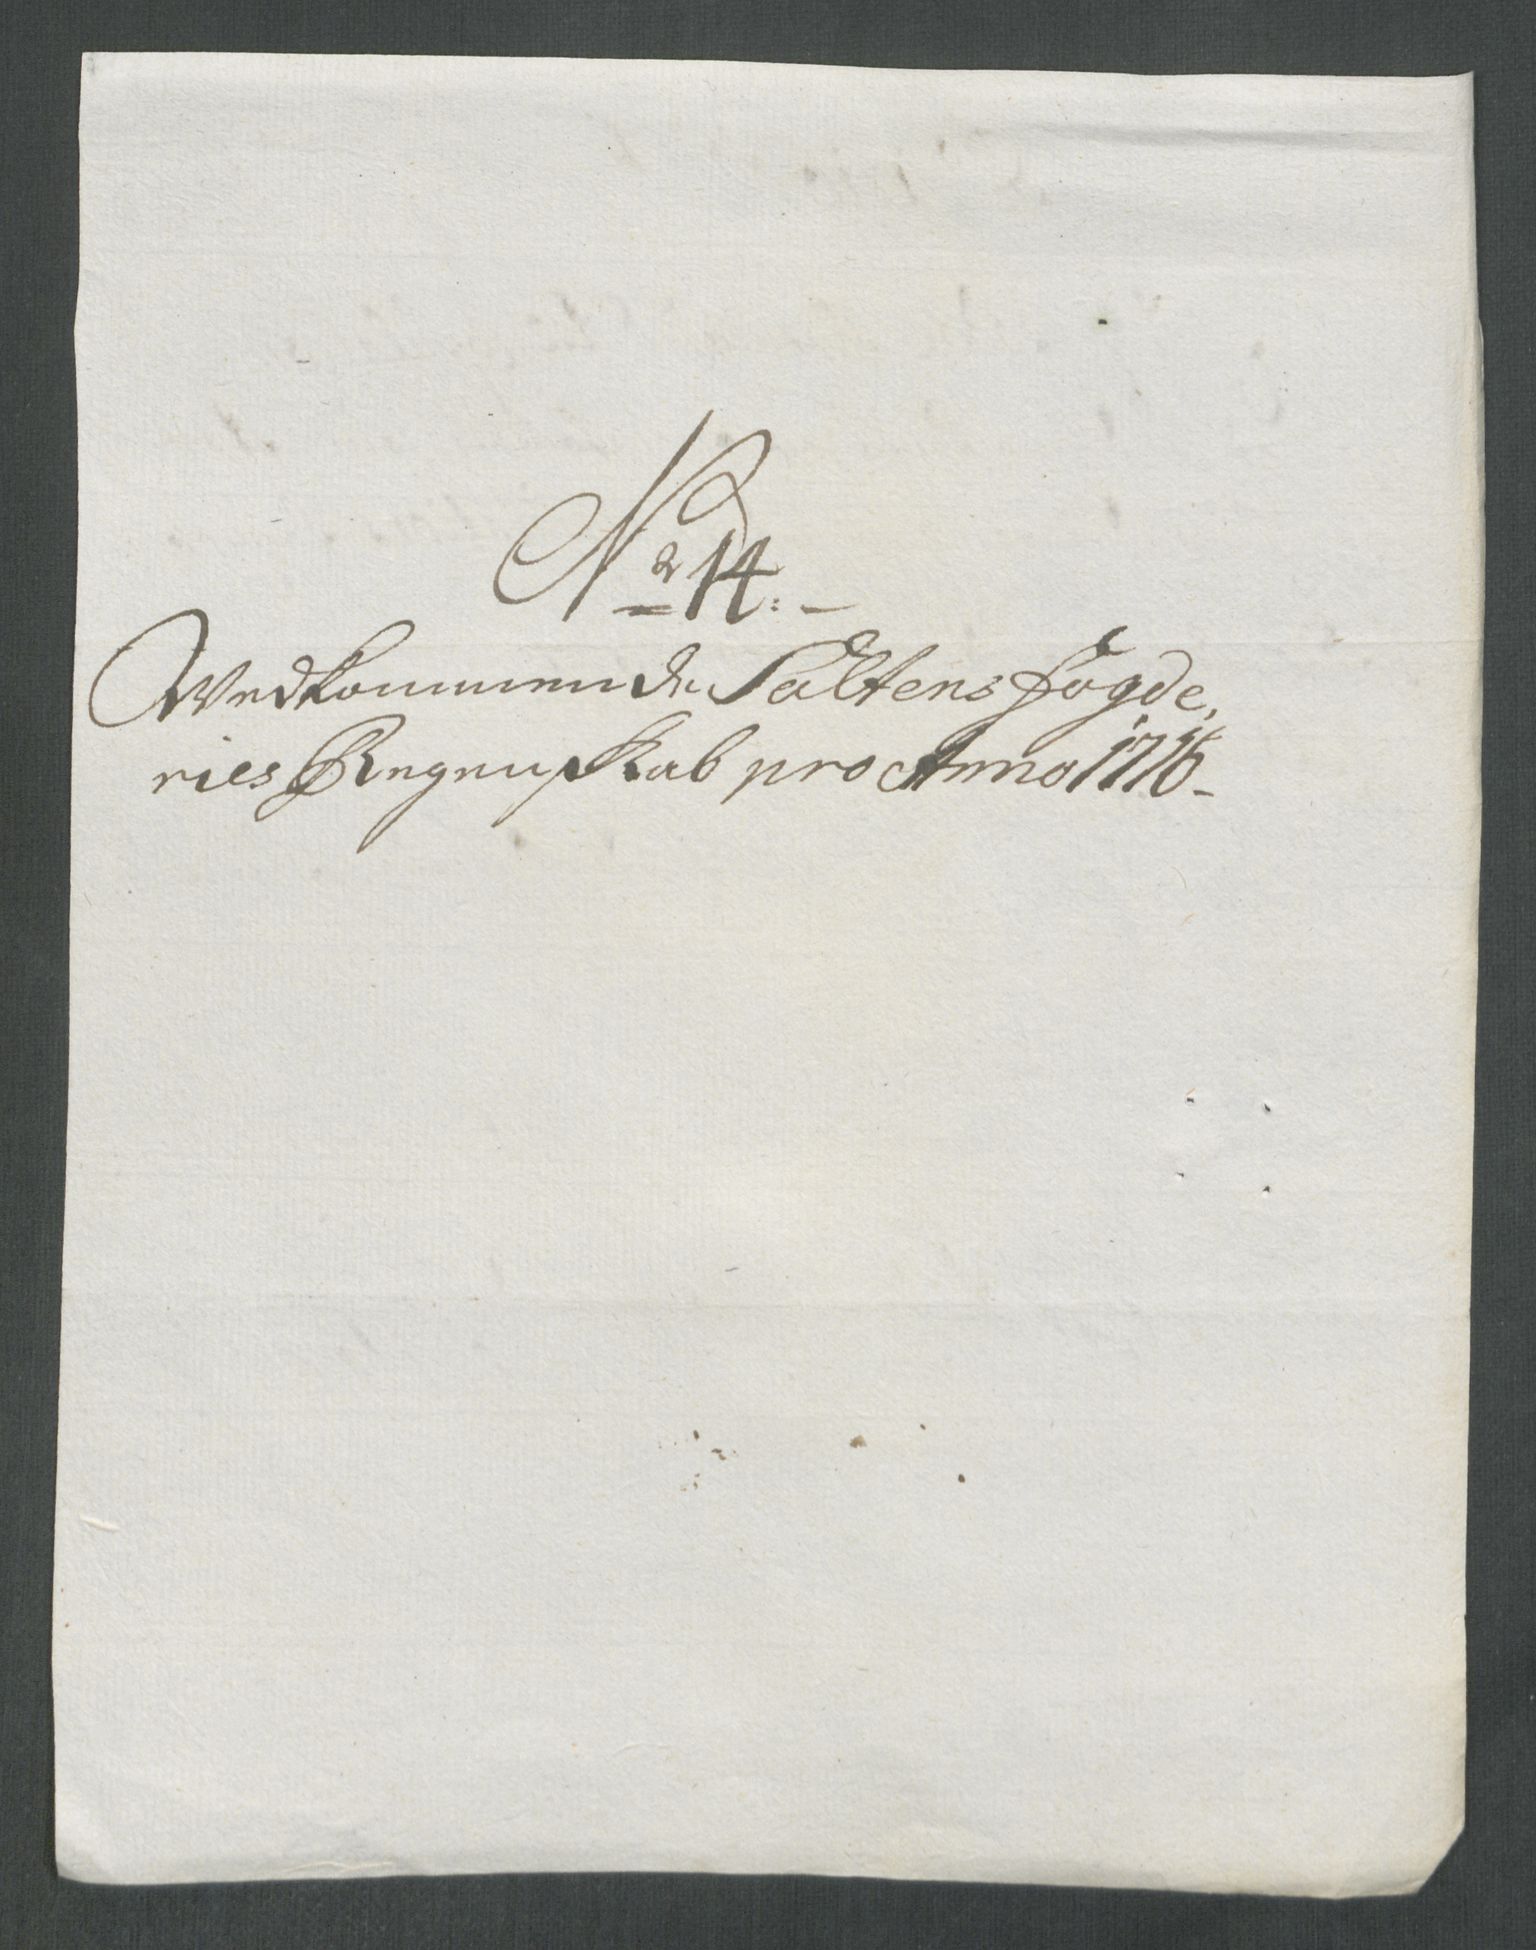 No 14:-
Wedkommende Saltens fögde,
ries Regenskab pro Anno 1716-